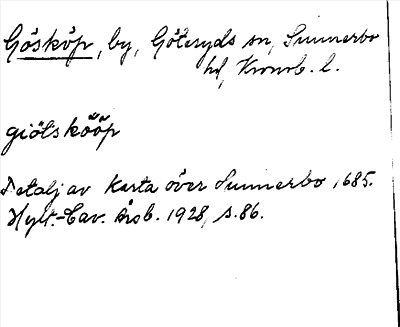 Gösköp, by, Göteryds sn, Sunnerbo
hd, Kronob. l.
giötskööp
Detalj av Karta över Sunnerbo 1685.
Hylt.-Cav. Årsb. 1928, s. 86.